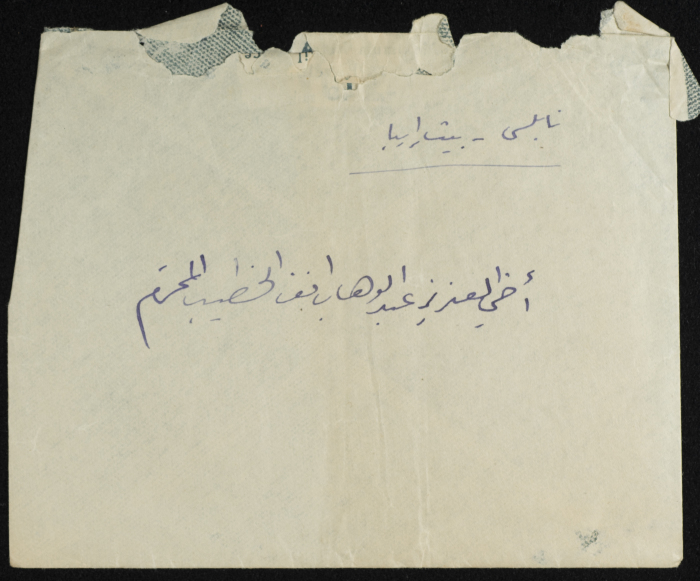 نابلس - بيت إيبا
أخي العزيز عبد الوهاب افندي الخطيب المحترم